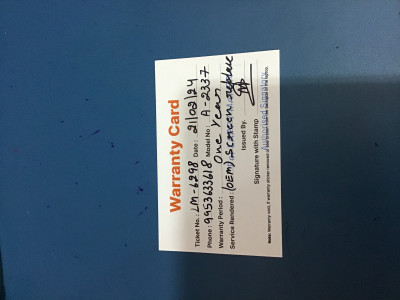 Warranty Card
Ticket No.: LM-6298 Date: 21/02/24
Phone: 9953633618 Model No: A-2337
Warranty Period: One Year
Service Rendered: (OEM) Screen replace
Issued By.
Signature with Stamp
Authorised Signatory
Note: Warranty void, if warranty sticker removed or